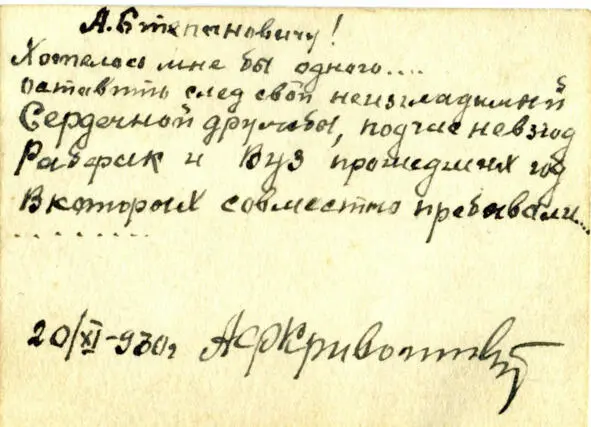 А. Степановичу!
Хотелось мне бы одного....
оставить след свой неизгладимый
Сердечной дружбы, подчас невзгод
Рабфак и Вуз прошедших год
В которых совместно пребывали...
.........
20/XI-930г